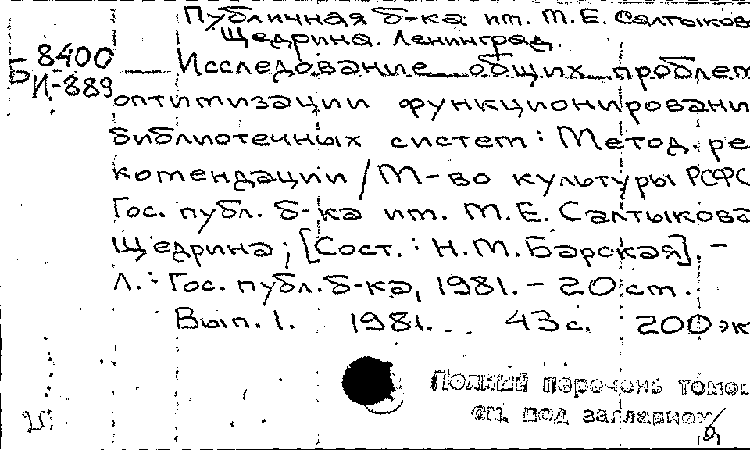 Публичная б-ка им. М.Е. Салтыков
Щедрина. Ленинград.
Б 8400
И-889
Исследование общих проблем
оптимизации функционировани
библиотечных систем : Метод. ре
комендации / М-во культуры РСФС
Гос. публ. б-ка им. М.Е. Салтыкова
Щедрина; [Сост. : Н.М. Барская]. -
Л. : Гос. публ. б-ка, 1981. - 20 см.
Вып. 1. 1981. 43 с. 200 эк
Полный перечень томов
см. под заглавием